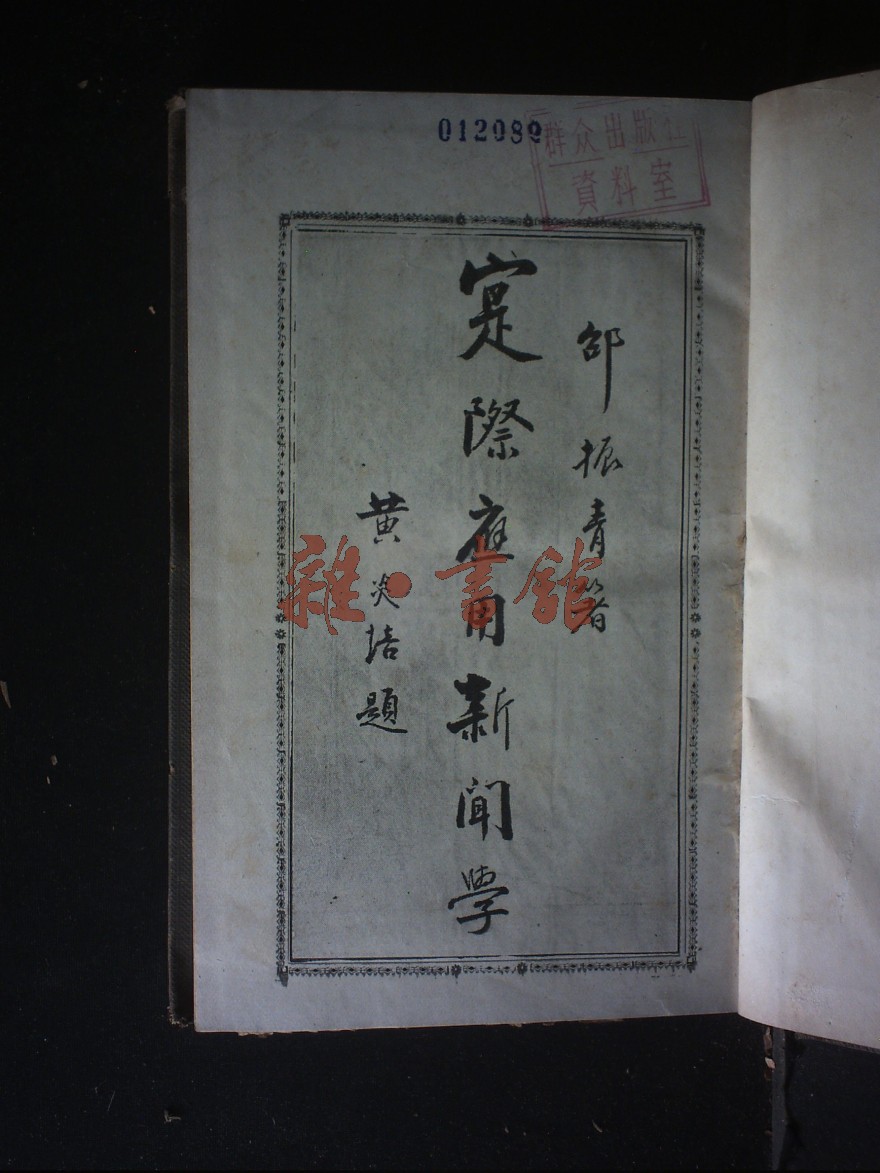 012089
群众出版社
資料室
邵振青著
寔際應用新聞學
黄炎培題
雜·書館